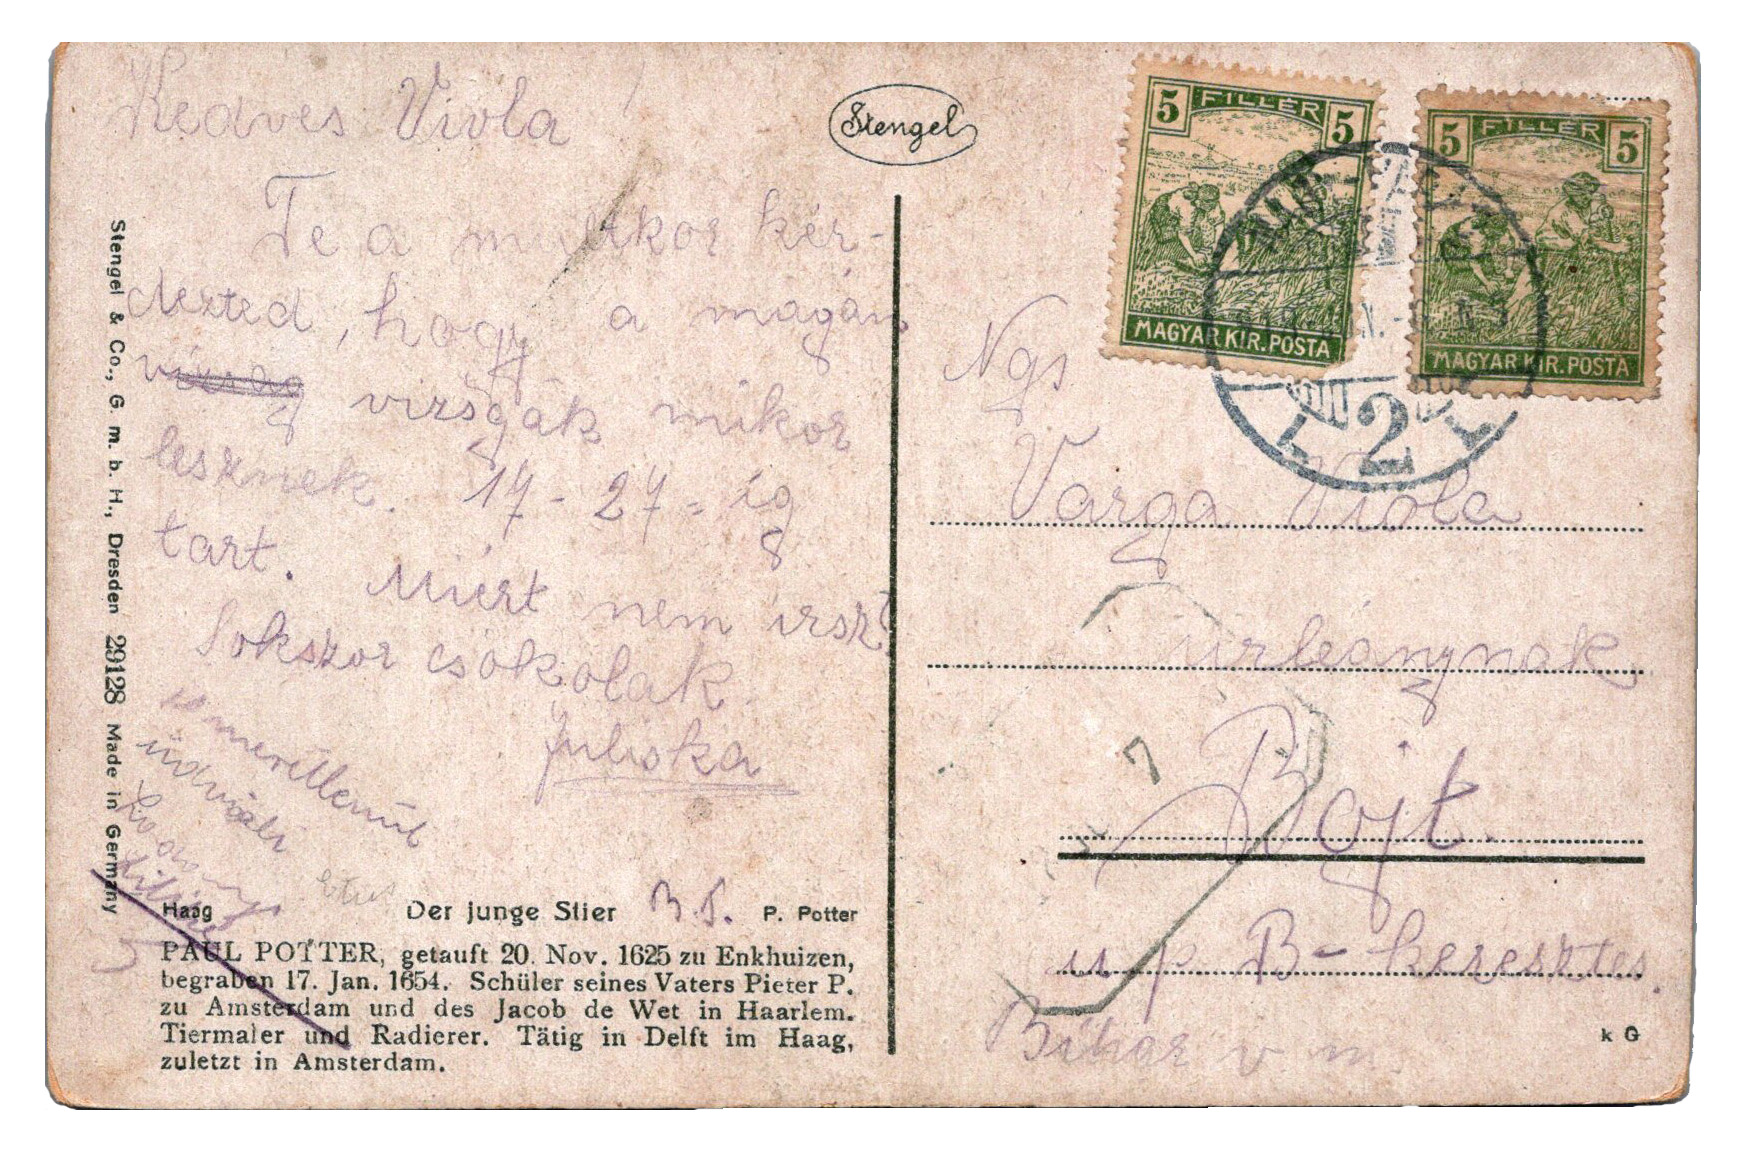 Kedves Viola!
Te a multkor kér-
dezted, hogy a magán
virág vizsgák mikor
lesznek. 17-27-ig
tart. Miért nem irsz?
Sokszor csókolak
Juliska
ismeretlenül
üdvözli
Stengel
Stengel & Co., G. m. b. H., Dresden 29128 Made in Germany
Haag Der junge Stier B. S. P. Potter
PAUL POTTER, getauft 20. Nov. 1625 zu Enkhuizen,
begraben 17. Jan. 1654. Schüler seines Vaters Pieter P.
zu Amsterdam und des Jacob de Wet in Haarlem.
Tiermaler und Radierer. Tätig in Delft im Haag,
zuletzt in Amsterdam.
5 FILLÉR 5
MAGYAR KIR. POSTA
5 FILLÉR 5
MAGYAR KIR. POSTA
2
Ngs
Varga Viola
úrleánynak
7
Bojt.
u p B-keresztes.
Bihar v m.
k G